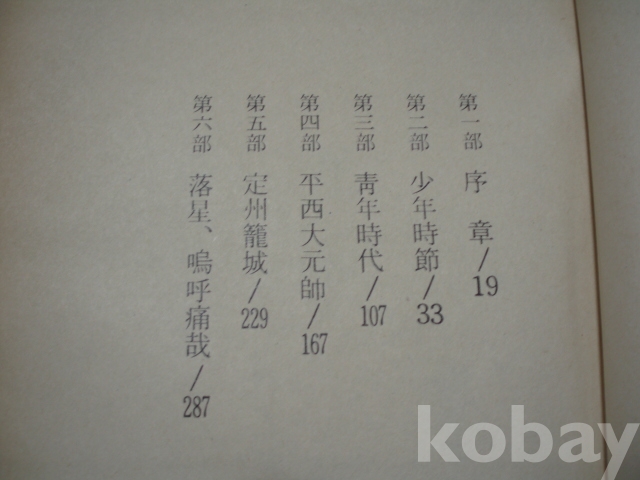 第一部 序 章/19
第二部 少年時節/33
第三部 靑年時代/107
第四部 平西大元帥/167
第五部 定州籠城/229
第六部 落星、嗚呼痛哉/287
kobay